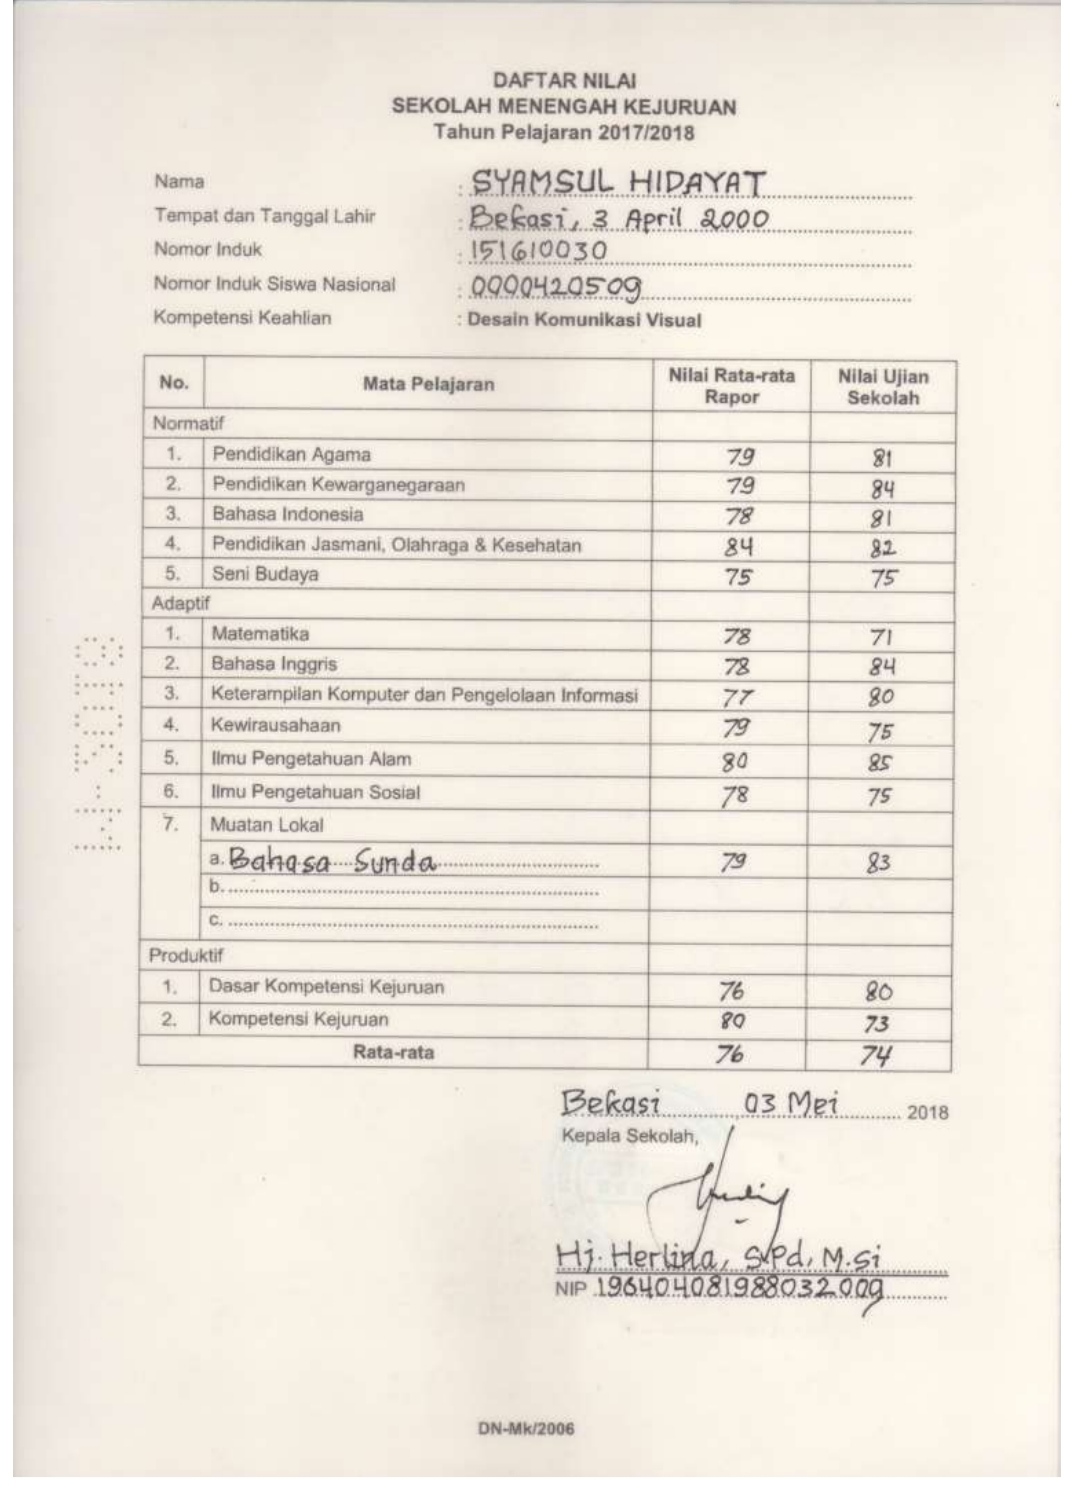 DAFTAR NILAI
SEKOLAH MENENGAH KEJURUAN
Tahun Pelajaran 2017/2018
Nama : SYAMSUL HIDAYAT
Tempat dan Tanggal Lahir : Bekasi, 3 April 2000
Nomor Induk : 151610030
Nomor Induk Siswa Nasional : 0000420509
Kompetensi Keahlian : Desain Komunikasi Visual
No. Mata Pelajaran Nilai Rata-rata Rapor Nilai Ujian Sekolah
Normatif
1. Pendidikan Agama 79 81
2. Pendidikan Kewarganegaraan 79 84
3. Bahasa Indonesia 78 81
4. Pendidikan Jasmani, Olahraga & Kesehatan 84 82
5. Seni Budaya 75 75
Adaptif
1. Matematika 78 71
2. Bahasa Inggris 78 84
3. Keterampilan Komputer dan Pengelolaan Informasi 77 80
4. Kewirausahaan 79 75
5. Ilmu Pengetahuan Alam 80 85
6. Ilmu Pengetahuan Sosial 78 75
7. Muatan Lokal
a. Bahasa Sunda 79 83
b.
c.
Produktif
1. Dasar Kompetensi Kejuruan 76 80
2. Kompetensi Kejuruan 80 73
Rata-rata 76 74
Bekasi 03 Mei 2018
Kepala Sekolah,
Hj. Herlina, S.Pd, M.Si
NIP 196404081988032009
DN-Mk/2006